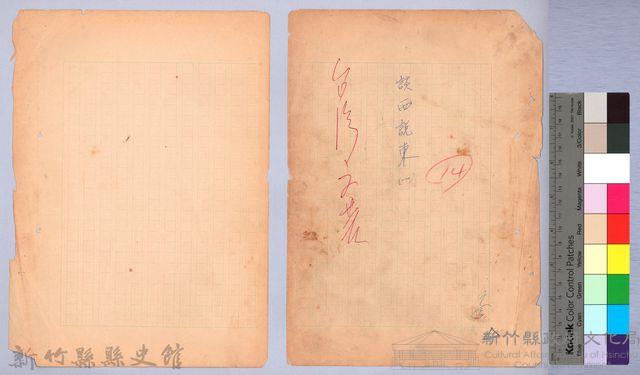 台灣文藝
談西說東
14
新竹縣縣史館
新竹縣政府文化局
Cultural Affairs
of Hsinchu
County
Kodak Color Control Patches
Blue
Cyan
Green
Yellow
Red
Magenta
White
3/Color
Black